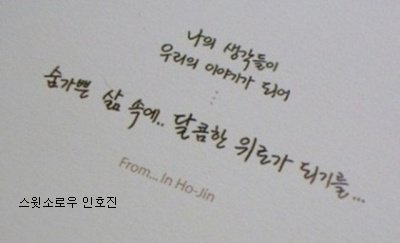 나의 생각들이
우리의 이야기가 되어
⋮
숨가쁜 삶 속에.. 달콤한 위로가 되기를...
From... In Ho-Jin
스윗소로우 인호진